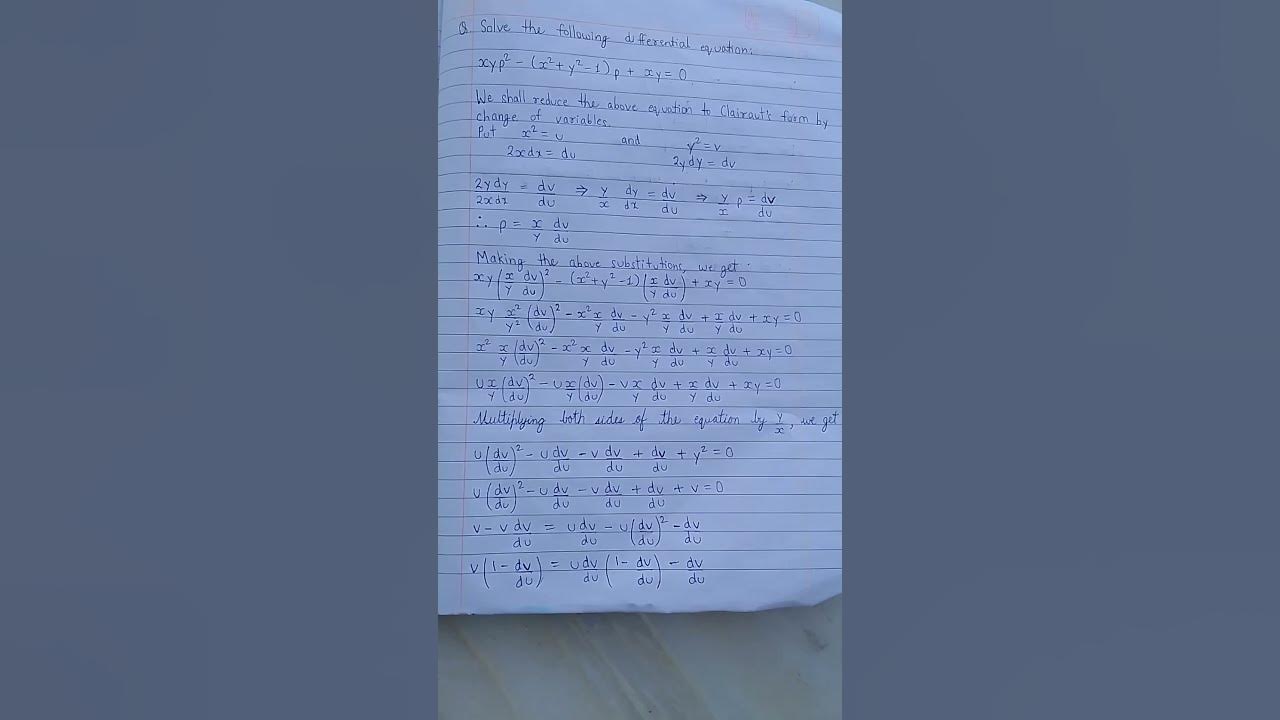 Q Solve the following differential equation:
xyp² - (x²+y²-1)p + xy = 0
We shall reduce the above equation to Clairaut's form by
change of variables.
Put x² = u and y² = v
2xdx = du 2ydy = dv
2ydy/2xdx = dv/du ⇒ y/x dy/dx = dv/du ⇒ y/x p = dv/du
∴ p = x/y dv/du
Making the above substitutions, we get
xy(x/y dv/du)² - (x²+y²-1)(x/y dv/du) + xy = 0
xy x²/y² (dv/du)² - x² x/y dv/du - y² x/y dv/du + x/y dv/du + xy = 0
x² x/y (dv/du)² - x² x/y dv/du - y² x/y dv/du + x/y dv/du + xy = 0
u x/y (dv/du)² - u x/y (dv/du) - v x/y dv/du + x/y dv/du + xy = 0
Multiplying both sides of the equation by y/x, we get
u(dv/du)² - u dv/du - v dv/du + dv/du + y² = 0
u(dv/du)² - u dv/du - v dv/du + dv/du + v = 0
v - v dv/du = u dv/du - u(dv/du)² - dv/du
v(1 - dv/du) = u dv/du (1 - dv/du) - dv/du